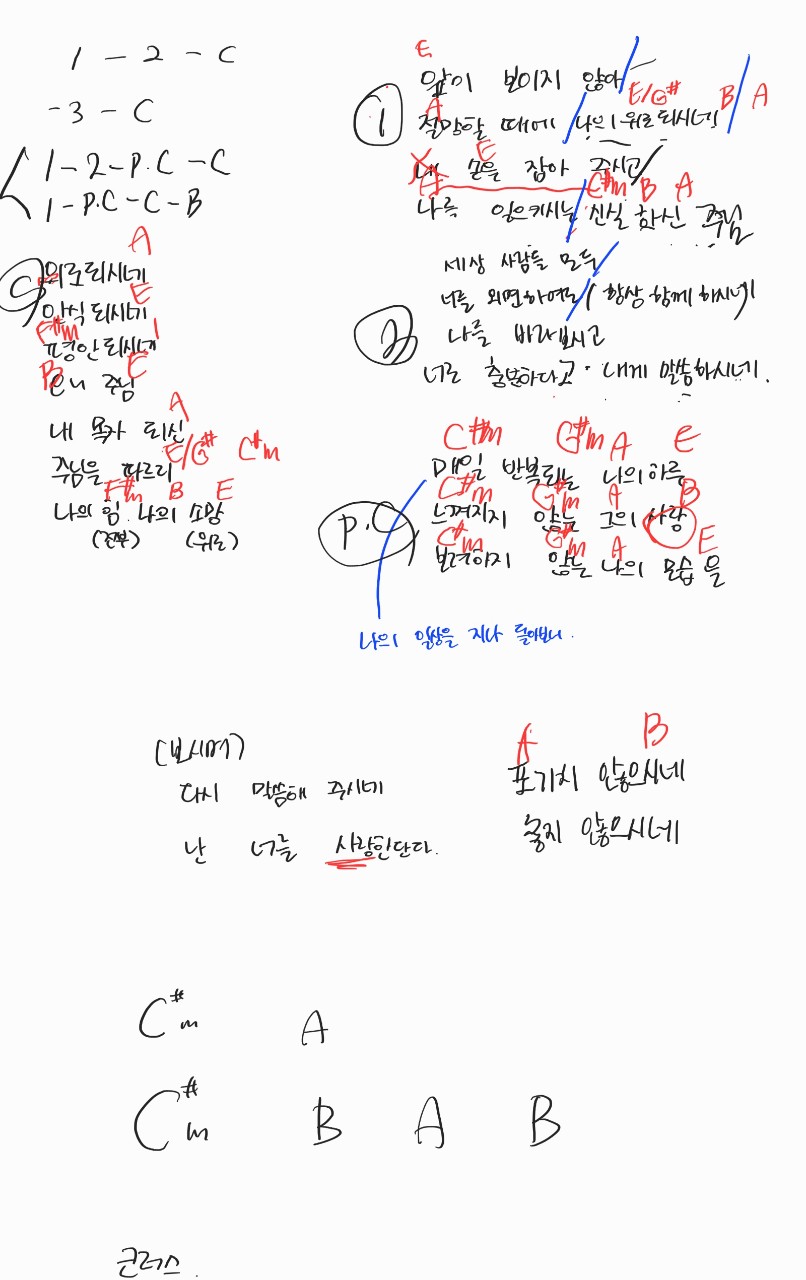 1 - 2 - C
- 3 - C
1 - 2 - P.C - C
1 - P.C - C - B
E
① 앞이 보이지 않아
A E/G# B A
절망할 때에 나의 위로 되시네
E
내 손을 잡아 주시고
A C#m B A
나를 일으키시는 신실하신 주님
②
세상 사람들 모두
너를 외면하여도 항상 함께 하시네
나를 바라보시고
너로 충분하다고 내게 말씀하시네.
C
A
위로 되시네
E
안식 되시네
F#m
평안 되시네
B E
주님
A
내 목자 되신
E/G# C#m
주님을 따르리
F#m B E
나의 힘 나의 소망
(전부) (위로)
P.C
C#m G#m A E
매일 반복되는 나의 하루
C#m G#m A B
느껴지지 않는 그의 사랑
C#m G#m A E
않는 나의 모습을
나의 일상을 지나 돌아보니.
(보시며)
다시 말씀해 주시네
난 너를 사랑한단다.
A B
포기치 않으시네
놓지 않으시네
C#m A
C#m B A B
코러스.